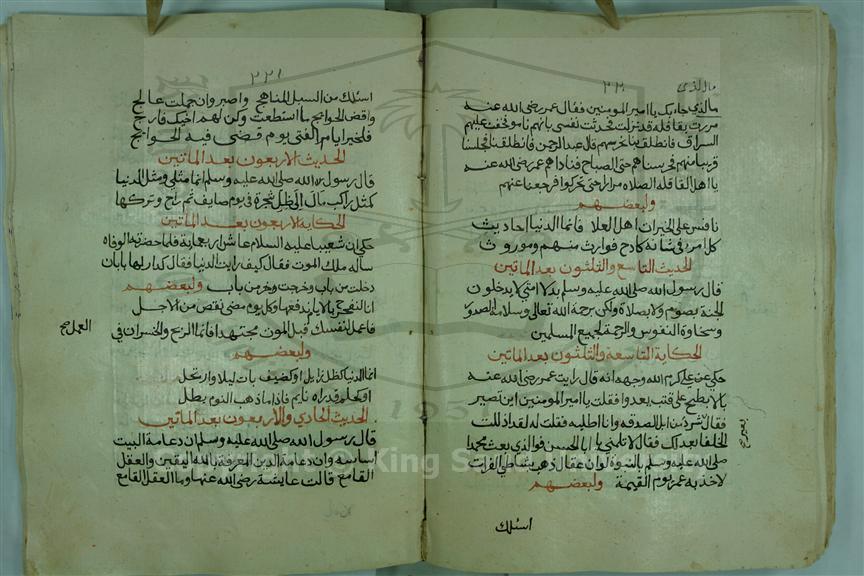 ٢٢٠
مالذي
مالذي جاء بك يا امير المومنين فقال عمر رضي الله عنه
مررت بقافله قد نزلت فحدثت نفسي بانهم ناموا فخفت عليهم
السراق فانطلق بنا نحرسهم قال عبد الرحمن فانطلقنا فجلسنا
قريبا منهم نحرسنا هم حتى الصباح فناداهم عمر رضي الله عنه
يا اهل القافله الصلاه مرارا حتى تحركوا فرجعنا عنهم
ولبعضهم
نافس على الخيرات اهل العلا فانما الدنيا احاديث
كل امرء في شانه كادح فوارث منهم وموروث
الحديث التاسع والثلثون بعد الماتين
قال رسول الله صلى الله عليه وسلم بدلا امتي لا يدخلون
الجنة بصوم ولا بصلاة ولكن برحمة الله تعالى وسلامة الصدور
وسخاوة النفوس والرحمة لجميع المسلمين
الحكاية التاسعة والثلثون بعد الماتين
حكي عن علي كرم الله وجهه انه قال رايت عمر رضي الله عنه
بالابطح على قتب يعدو فقلت يا امير المومنين اين تصير
فقال شرد من ابل الصدقه وانا اطلبه فقلت له لقد اذللت
الخلفا بعدك فقال لا تلمني يا ابا الحسن فوالذي بعث محمدا
صلى الله عليه وسلم بالنبوة لو ان عقال ذهب بشاطي الفرات
لاخذ به عمر يوم القيمة ولبعضهم
اسئلك
٢٢١
اسئلك من السبل المناهج واصبر وان حملت عالج
واقض الحوايج ما استطعت وكن لهم اخيك فارج
فلخير ايام الفتى يوم قضى فيه الحوايج
الحديث الاربعون بعد الماتين
قال رسول الله صلى الله عليه وسلم انما مثلي ومثل الدنيا
كمثل راكب مال الى ظل شجرة في يوم صايف ثم راح وتركها
الحكاية الاربعون بعد الماتين
حكي ان شعيبا عليه السلام عاش اربعماية فلما حضرته الوفاه
ساله ملك الموت فقال كيف رايت الدنيا فقال كدار لها بابان
دخلت من باب وخرجت من باب ولبعضهم
انا لنفرح بالايام ندفعها وكل يوم مضى نقص من الاجل
فاعمل لنفسك قبل الموت مجتهدا فانما الربح والخسران في
العمل صح
ولبعضهم
انما الدنيا كظل زايل او كضيف بات ليلا وارتحل
او كحلم قد راه نايم فاذا ما ذهب النوم بطل
الحديث الحادي والاربعون بعد الماتين
قال رسول الله صلى الله عليه وسلم ان دعامة البيت
اساسه وان دعامة الدين المعرفة بالله اليقين والعقل
القامع قالت عايشة رضي الله عنها وما العقل القامع